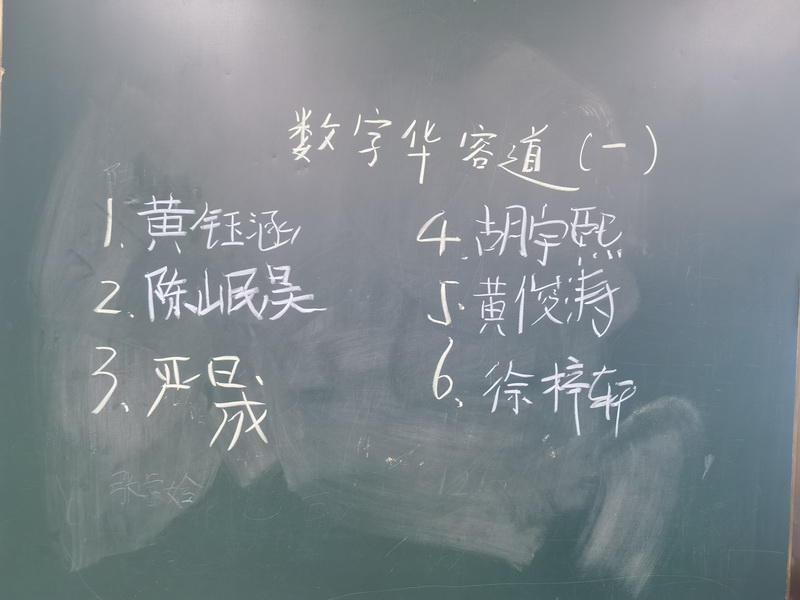 数字华容道(一)
1.黄钰涵
2.陈岷昊
3、严晟
4.胡宇熙
5.黄俊涛
6、徐梓轩